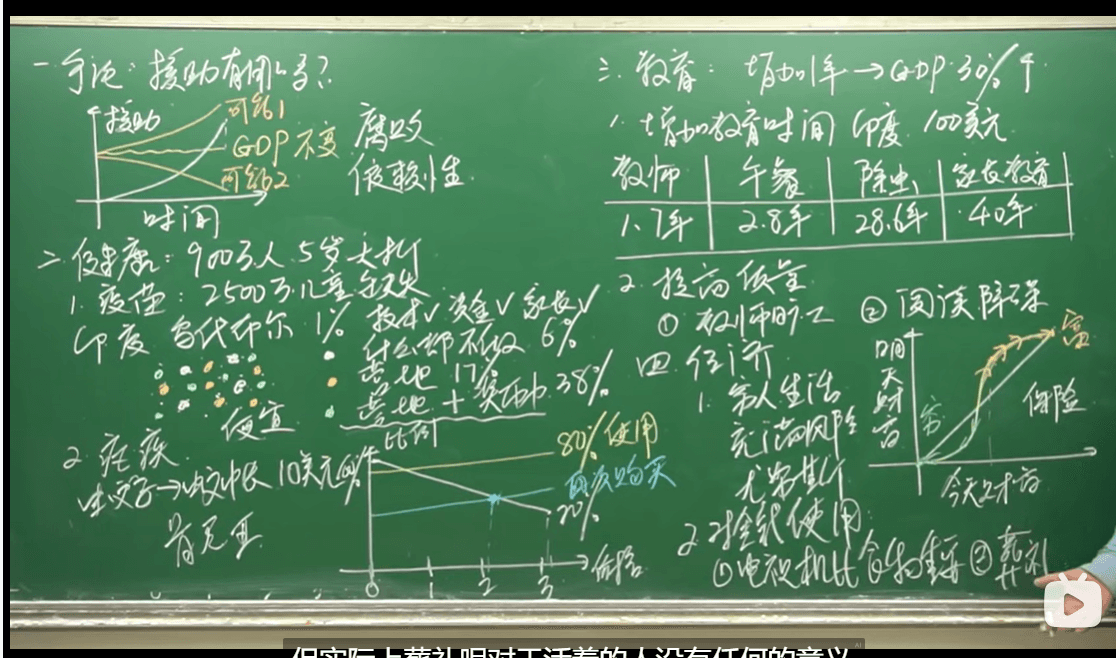 一. 争论: 援助有用吗?
援助
可能1
GDP 不变
可能2
时间
腐败
依赖性
二. 健康: 900万人 5岁夭折
1. 疫苗: 2500万儿童缺失
印度 乌代布尔 1% 技术√ 资金√ 家长√
什么都不做 6%
营地 17%
营地 + 奖励 38%
便宜
2. 疟疾
蚊子→蚊帐 10美元
肯尼亚
比例
80% 使用
再次购买
20%
0 1 2 3 价格
三. 教育: 增加1年→GDP 30%↑
1. 增加教育时间 印度 100美元
教师 午餐 除虫 家长教育
1.7年 2.8年 28.6年 40年
2. 提高质量
① 教师旷工 ② 阅读障碍
四. 经济
1. 穷人生活
充满风险
尤努斯
明天财富
富
穷
保险
今天财富
2. 对金钱使用
① 电视机比食物重要 ② 葬礼
但实际上葬礼呢对于活着的人没有任何的意义